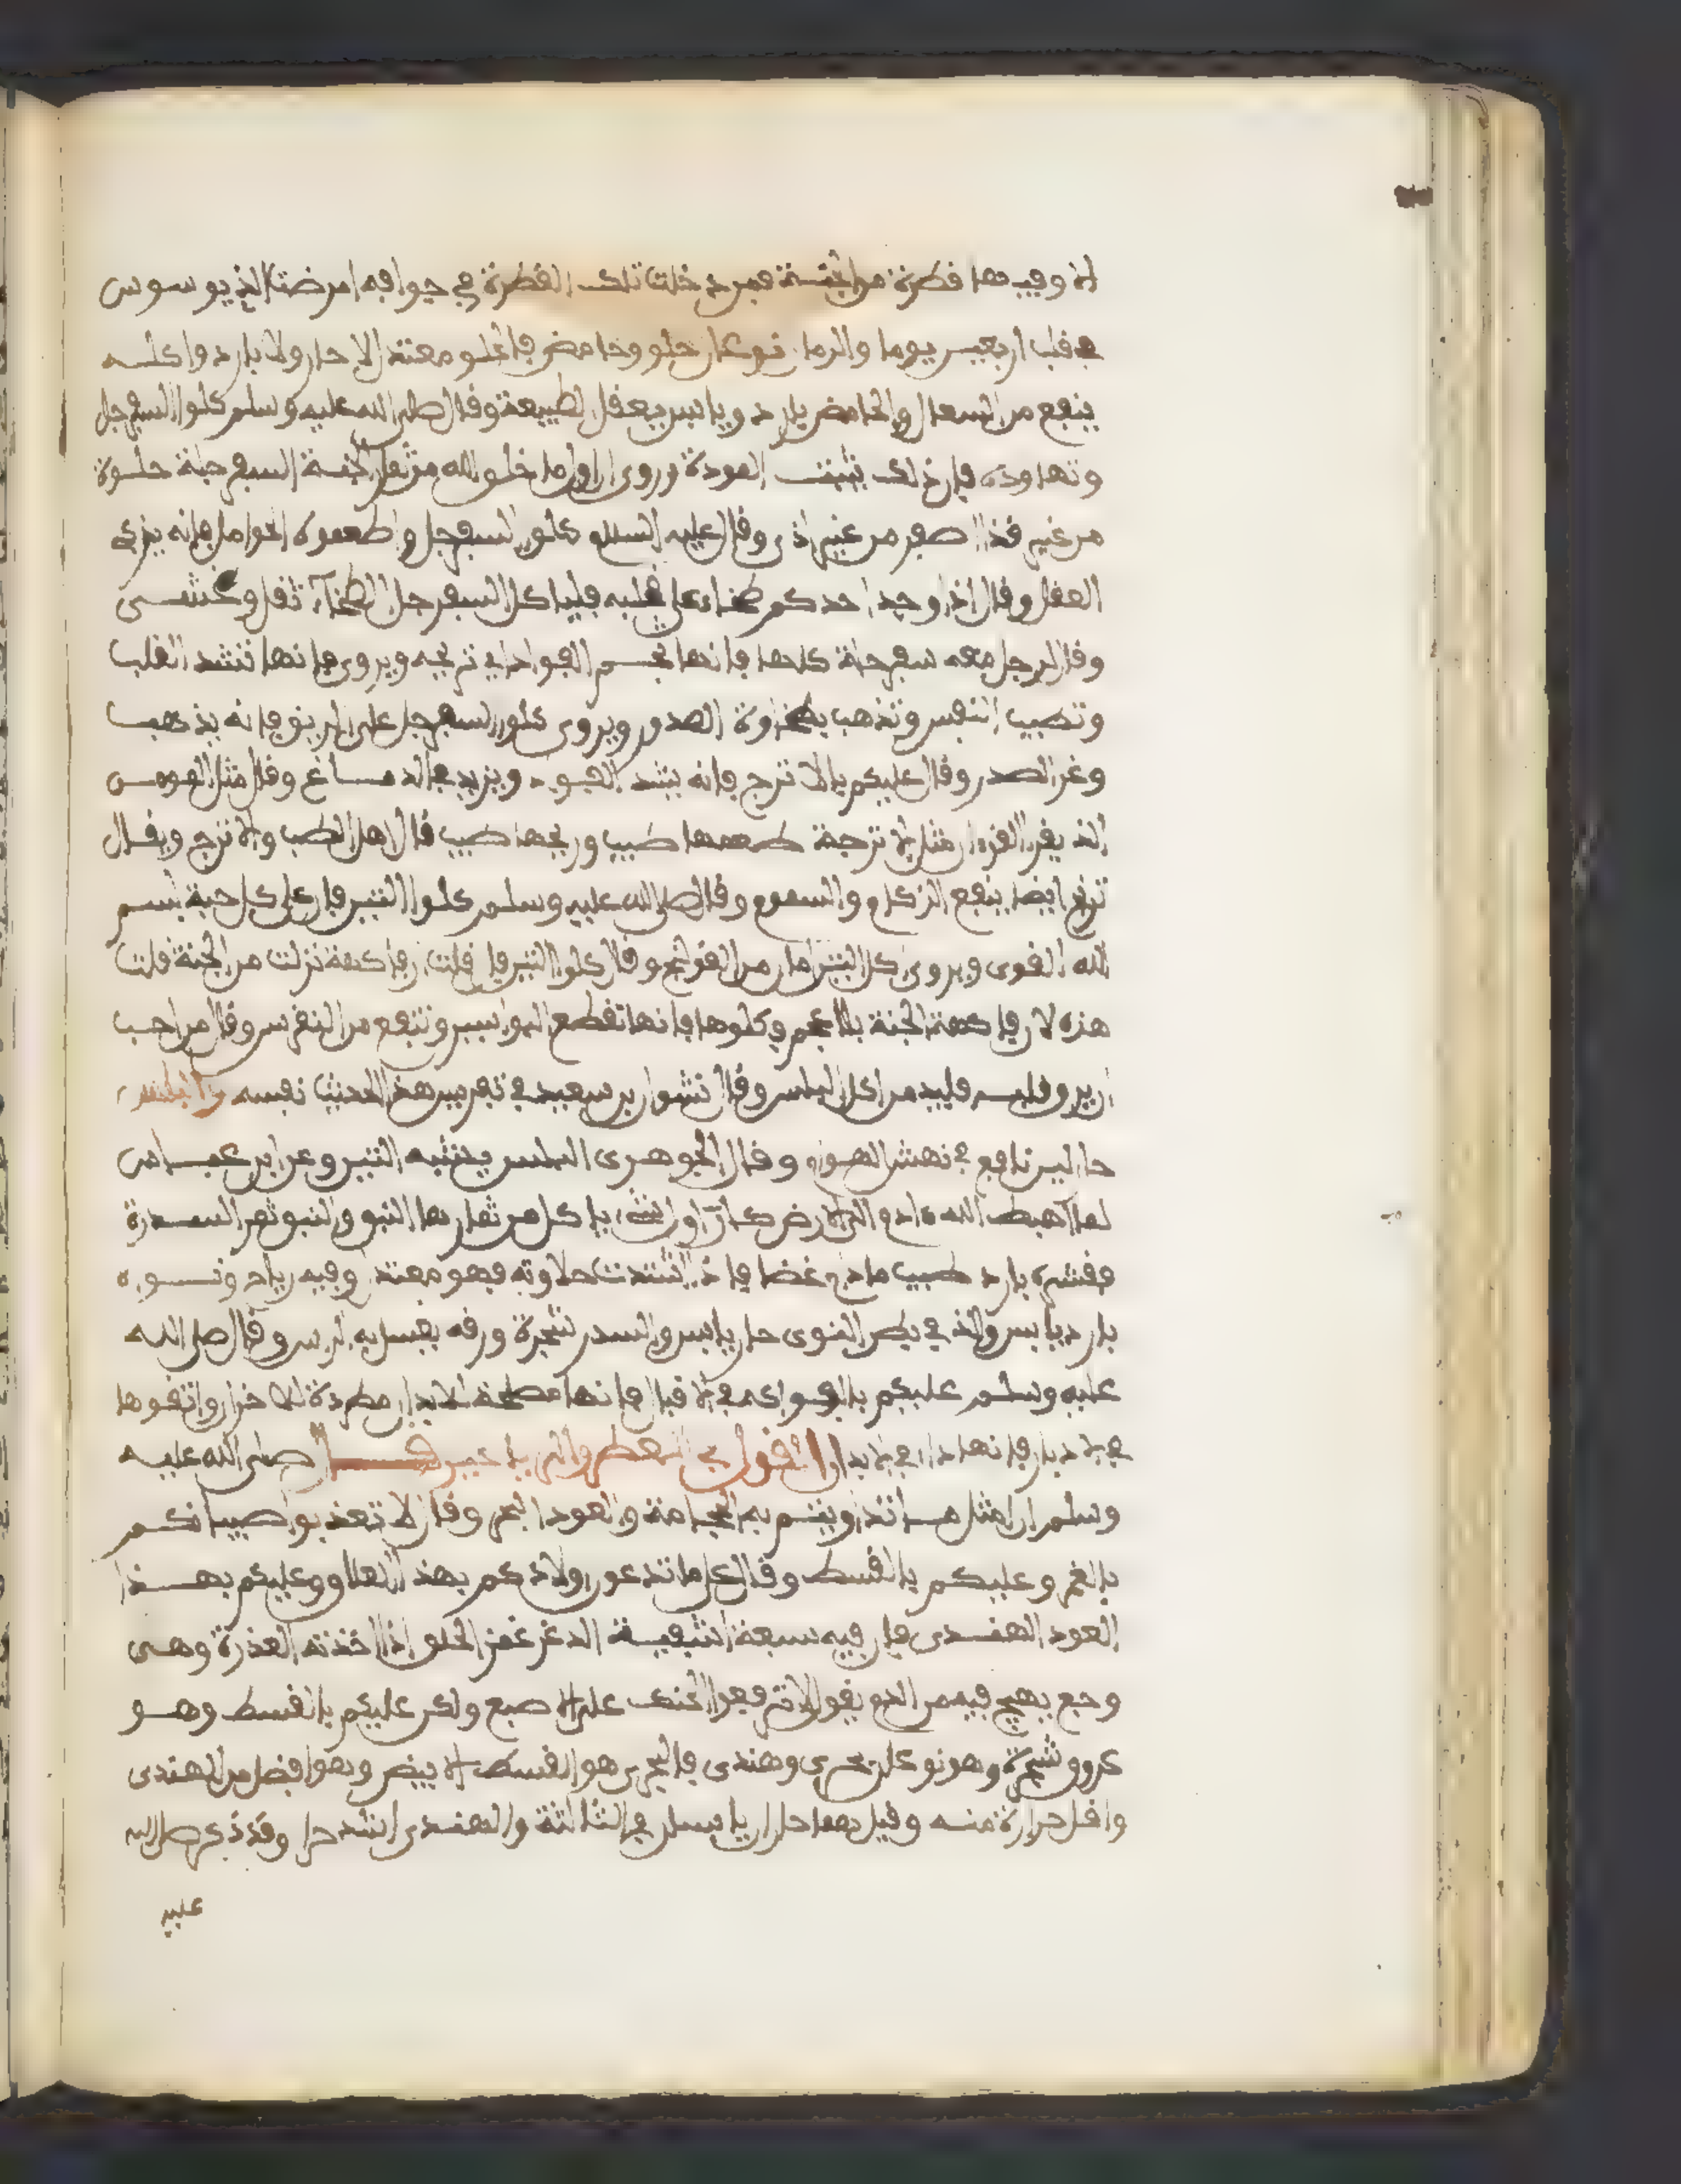 الا وفيها قطرة من الجنة فمن دخلت تلك القطرة في جوافه امرضت الذي يوسوس
في قلب اربعين يوما والرمان نوعان حلو وحامض فالحلو معتدل لا حار ولا بارد واكله
ينفع من السعال والحامض بارد ويابس يعقل الطبيعة وقال صلى الله عليه وسلم كلوا السفرجل
وتهادوه فان ذلك يثبت المودة وروى ان اول ما خلق الله من ثمار الجنة السفرجلة حلوة
من غير قذا صفر من غير اذى وقال عليه السلام كلوا السفرجل واطعموه الحوامل فانه يزكى
العقل وقال اذا وجد احدكم طخاء على قلبه فلياكل السفرجل الطخاء ثقل وغشى
وقال لرجل معه سفرجلة كلها فانها تجم الفواد اي تريحه ويروى فانها تشد القلب
وتطيب النفس وتذهب بطخاوة الصدور ويروى كلوا السفرجل على الريق فانه يذهب
وغر الصدر وقال عليكم بالاترج فانه يشد الفواد ويزيد في الدماغ وقال مثل المومن
الذي يقرا القرءان مثل الاترجة طعمها طيب وريحها طيب قال اهل الطب والاترج ويقال
ترنج ايضا ينفع الزكام والسموم وقال صلى الله عليه وسلم كلوا التين فان على كل حبة بسم
الله القوى ويروى كل التين امان من القولنج وقال كلوا التين فلو قلت ان فاكهة نزلت من الجنة قلت
هذه لان فاكهة الجنة بلا عجم وكلوها فانها تقطع البواسير وتنفع من النقرس وقال من احب
ان يرق قلبه فليدمن اكل البلس وقال نشوان بن سعيد في تفسير هذا الحديث نفسه
حار لين نافع في نهش الهوام وقال الجوهرى البلس يشبه التين وعن ابن عباس
لما اهبط الله ءادم الى الارض كان اول شئ ياكل من ثمارها النبق والنبق ثمر السدرة
فقشره بارد طيب مادام غضا فاذا اشتدت حلاوته فهو معتدل وفيه رياح ونواه
بارد يابس والذي في بطن النوى حار يابس والسدر شجرة ورقه يغسل به الراس وقال صلى الله
عليه وسلم عليكم بالفواكه في اقبالها فانها مصحة للابدان مطردة للاحزان واتقوها
في ادبارها فانها داء في الابدان القول في العطر والرياحين قال صلى الله عليه
وسلم ان امثل ما تداويتم به الحجامة والعود البحرى وقال لا تعذبوا صبيانكم
بالغمز وعليكم بالقسط وقال على ما تدغرن اولادكم بهذا العلاق وعليكم بهذا
العود الهندى فان فيه سبعة اشفية الدغر غمز الحلق اذا اخذته العذرة وهى
وجع يهيج فيه من الدم يقول لا ترفعوا الحنك على الاصبع ولكن عليكم بالقسط وهو
عروق شجرة وهو نوعان بحرى وهندى فالبحرى هو القسط الابيض وهو افضل من الهندى
واقل حرارة منه وقيل هما حاران يابسان في الثالثة والهندى اشد حرا وقد ذكر صلى الله
عليه